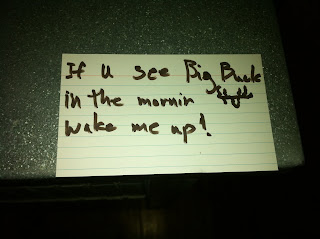 If u see Big Buck
in the mornin
wake me up!